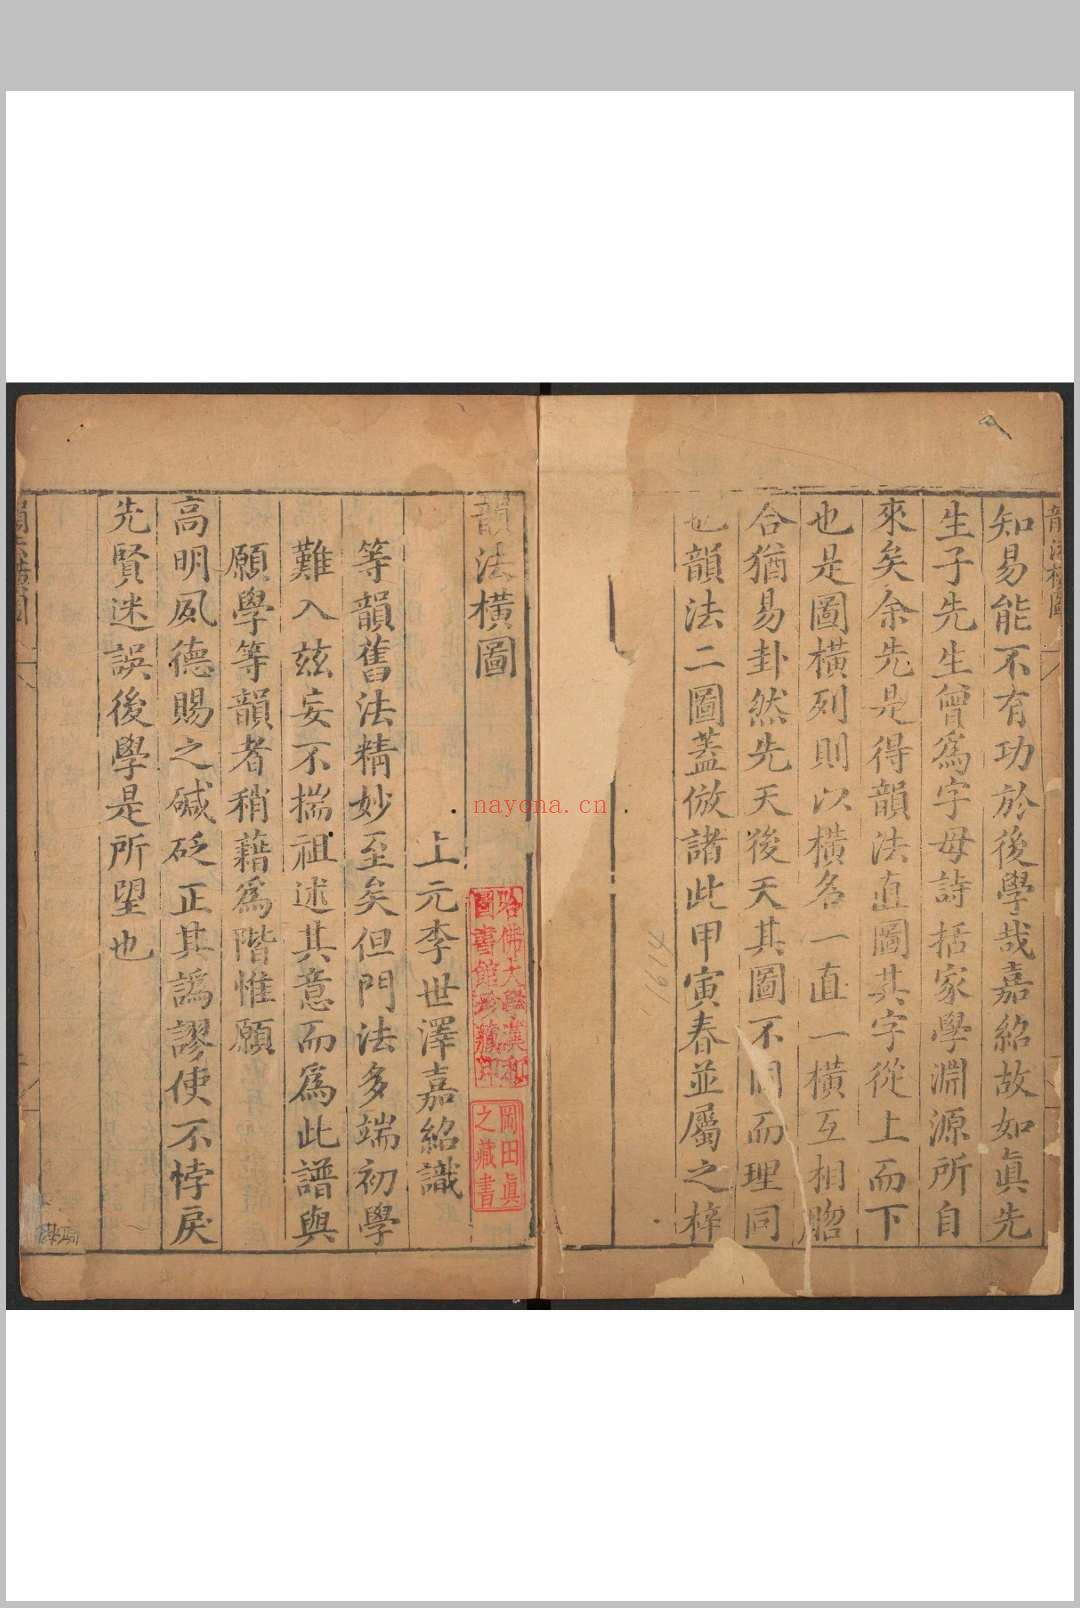 知易能不有功於後學哉嘉紹故如眞先
生子先生曾爲字母詩括家學淵源所自
來矣余先是得韻法直圖其字從上而下
也是圖橫列則以橫名一直一橫互相照
合猶易卦然先天後天其圖不同而理同
也韻法二圖蓋倣諸此甲寅春並屬之梓
韻法橫圖
上元李世澤嘉紹識
等韻舊法精妙至矣但門法多端初學
難入茲妄不揣祖述其意而爲此譜與
願學等韻者稍藉爲階惟願
高明夙德賜之碱砭正其譌謬使不悖戾
先賢迷誤後學是所望也
哈佛大學漢和
圖書館珍藏印
岡田眞
之藏書
nayona.cn